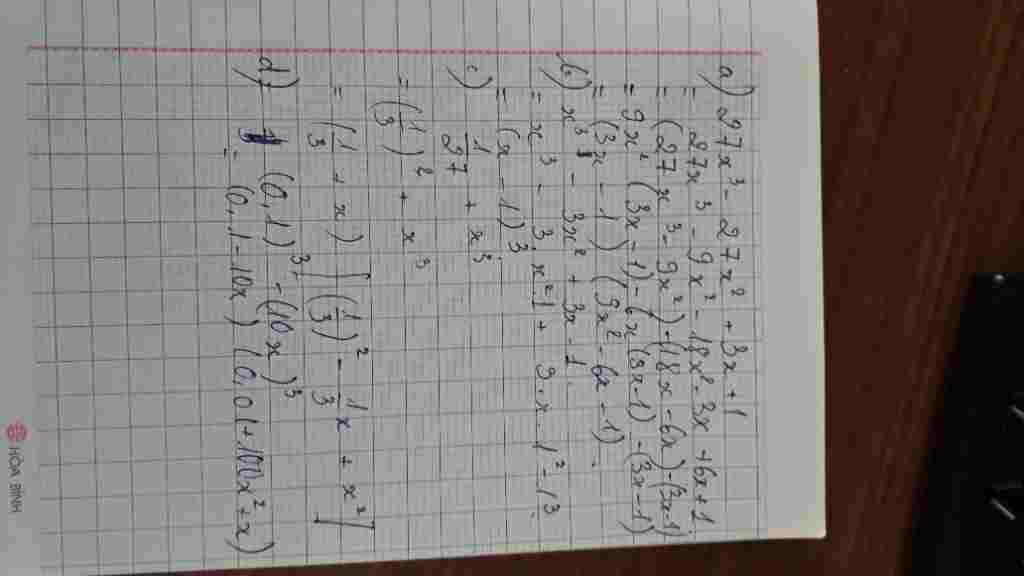 a) 27x³ - 27x² + 3x + 1
= 27x³ - 9x² - 18x² - 3x + 6x + 1
= (27x³ - 9x²) - (18x - 6x) - (3x - 1)
= 9x² (3x - 1) - 6x (3x - 1) - (3x - 1)
= (3x - 1) (9x² - 6x - 1)
b) x³ - 3x² + 3x - 1
= x³ - 3.x².1 + 3.x.1² - 1³
= (x - 1)³
c) 1/27 + x³
= (1/3)² + x³
= (1/3 + x) [(1/3)² - 1/3x + x²]
d) (0,1)³ - (10x)³
= (0,1 - 10x) (0,01 + 100x² + x)
HÒA BÌNH